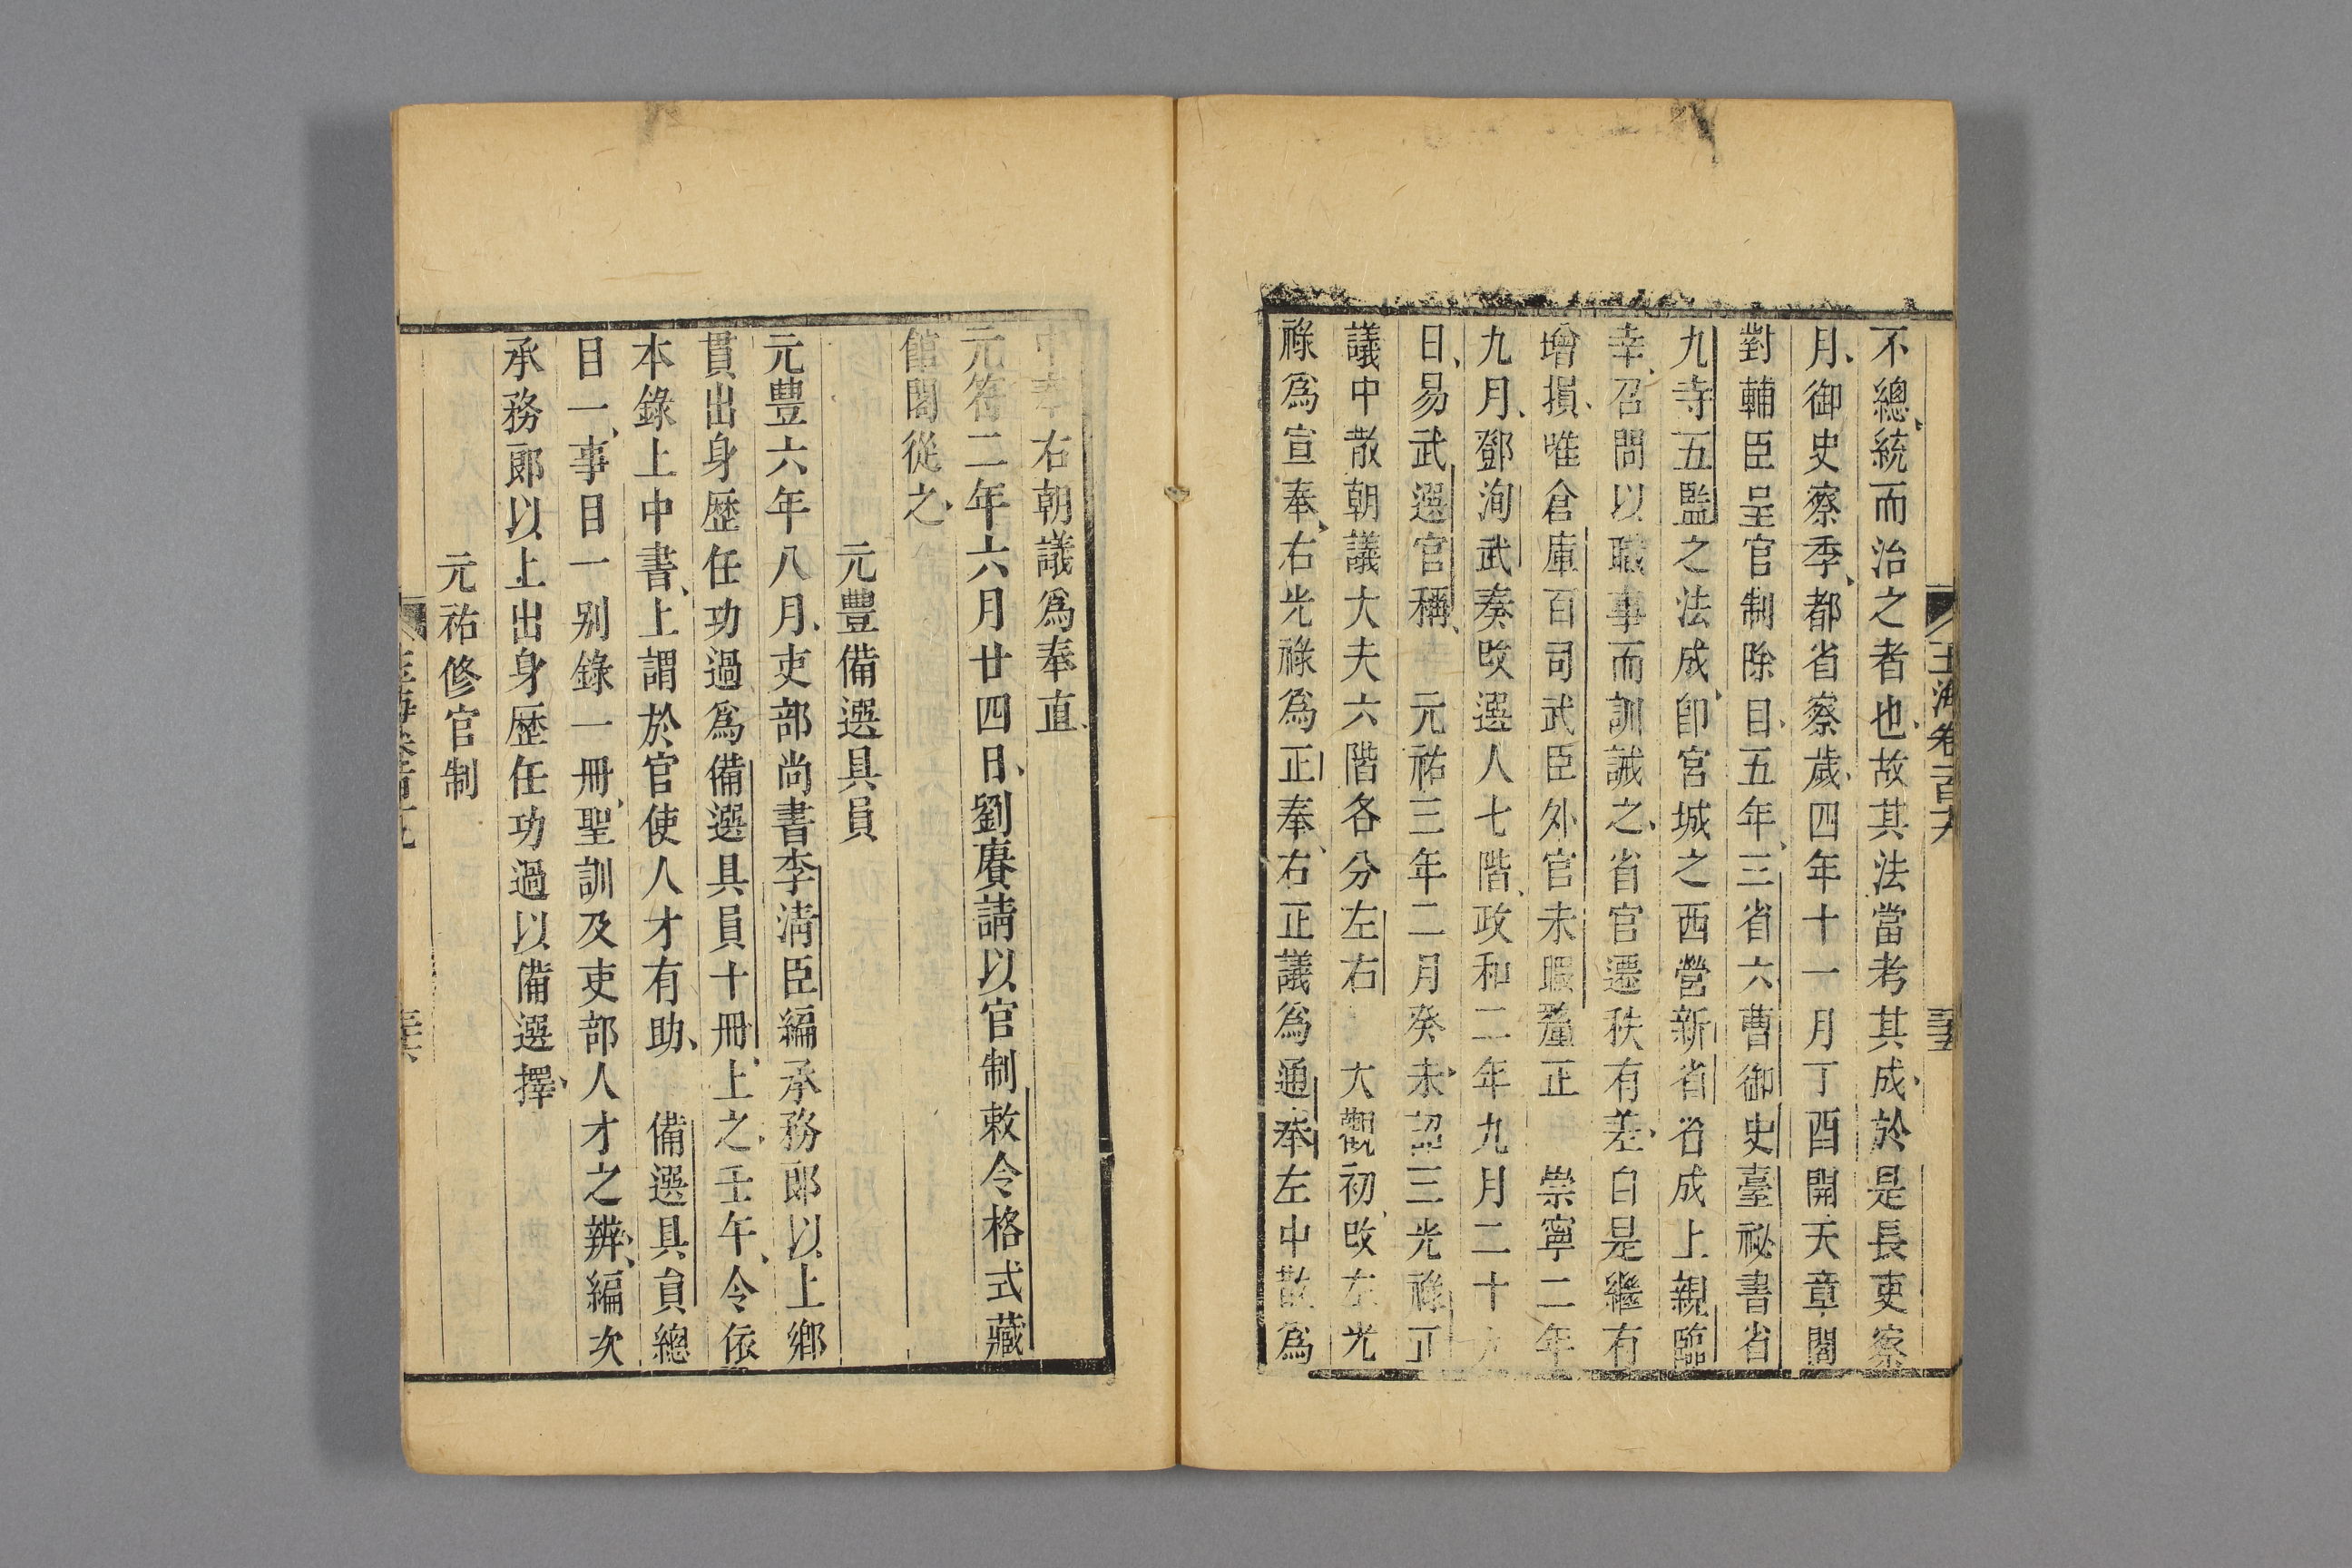 不總統而治之者也故其法當考其成於是長吏察
月御史察季都省察歲四年十一月丁酉開天章閣
對輔臣呈官制除目五年三省六曹御史臺祕書省
九寺五監之法成卽宮城之西營新省省成上親臨
幸召問以職事而訓誡之省官遷秩有差自是繼有
增損唯倉庫百司武臣外官未暇釐正 崇寧二年
九月鄧洵武奏改選人七階政和二年九月二十九
日易武選官稱 元祐三年二月癸未詔三光祿正
議中散朝議大夫六階各分左右 大觀初改左光
祿爲宣奉右光祿爲正奉右正議爲通奉左中散爲
中奉右朝議爲奉直
元符二年六月廿四日劉賡請以官制敕令格式藏
館閣從之
元豐備選具員
元豊六年八月吏部尚書李清臣編承務郎以上鄉
貫出身歷任功過爲備選具員十冊上之壬午令依
本錄上中書上謂於官使人才有助 備選具員總
目一事目一別錄一冊聖訓及吏部人才之辨編次
承務郎以上出身歷任功過以備選擇
元祐修官制